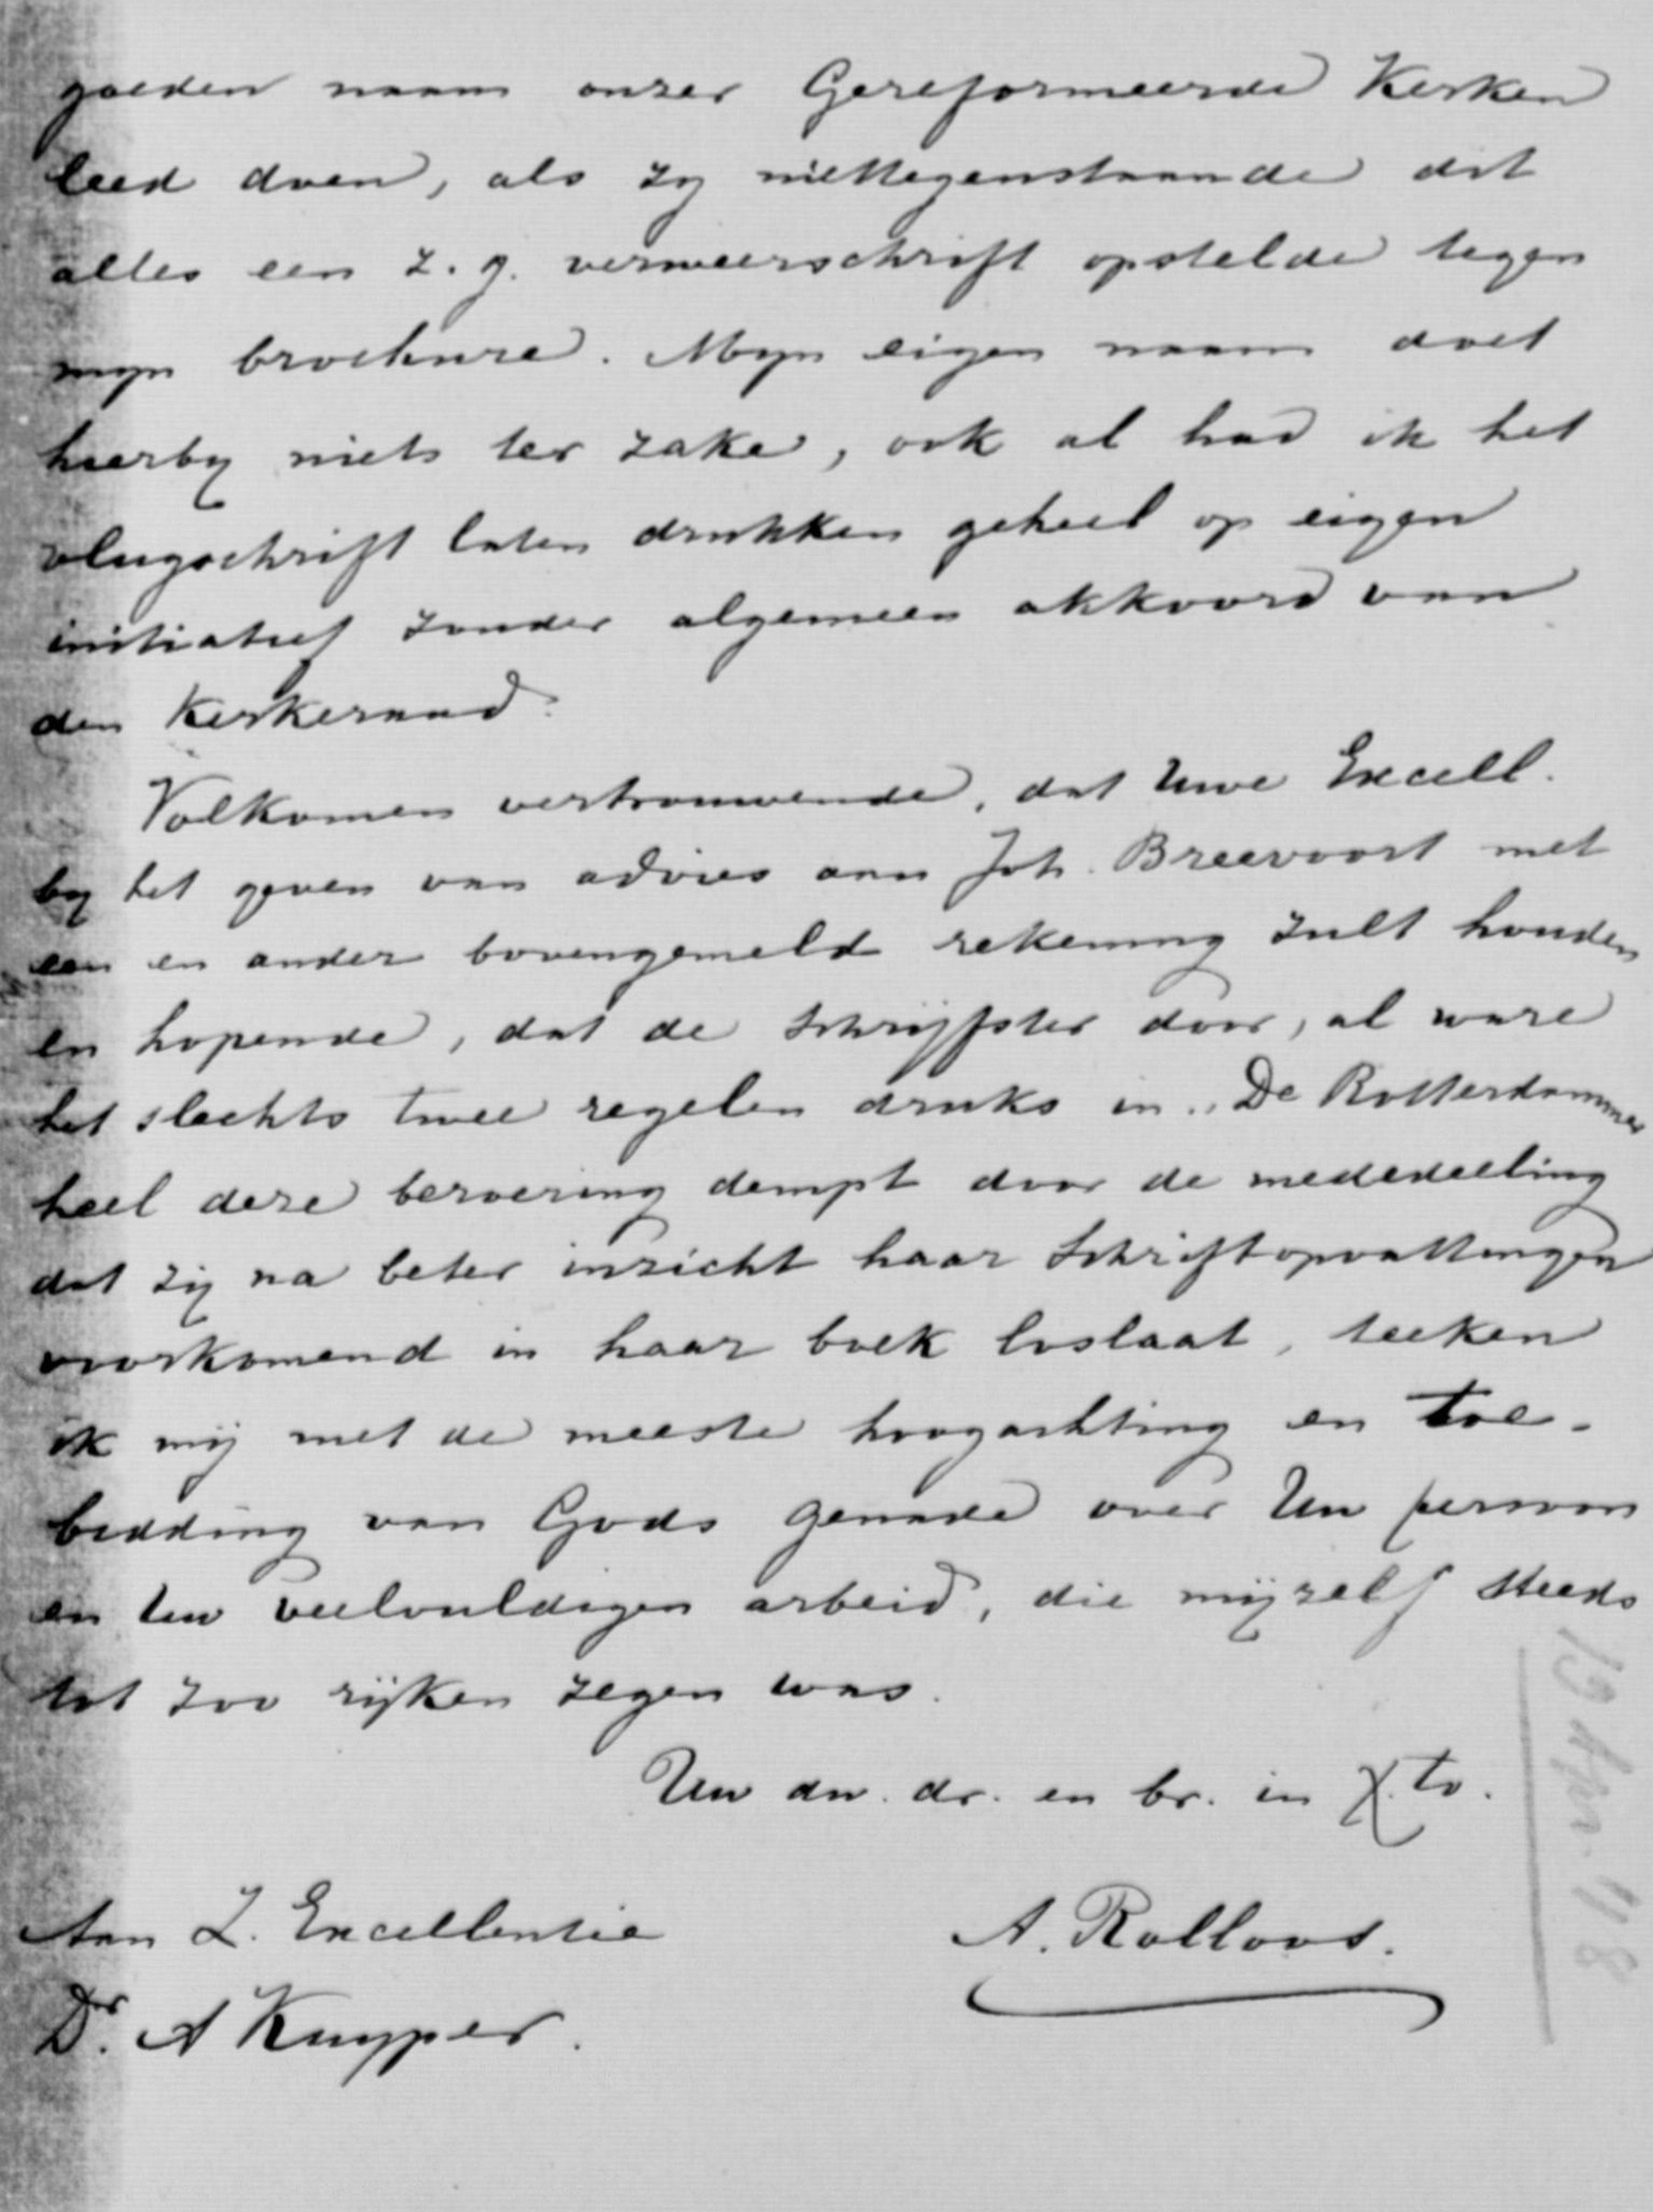 goeden naam onzer Gereformeerde Kerken
leed doen, als zy niettegenstaande dit
alles een z.g. verweerschrift opstelde tegen
myn brochure. Myn eigen naam doet
hierby niets ter zake, ook al had ik het
vlugschrift laten drukken geheel op eigen
initiatief zonder algemeen akkoord van
den Kerkeraad.
Volkomen vertrouwende, dat Uwe Excell.
by het geven van advies aan Joh. Breevoort met
een en ander bovengemeld rekening zult houden
en hopende, dat de Schrijfster door, al ware
het slechts twee regelen druks in „De Rotterdammer
heel deze beroering dempt door de mededeeling
dat zij na beter inzicht haar Schriftopvattingen
voorkomend in haar boek loslaat, teeken
ik mij met de meeste hoogachting en toe-
bidding van Gods genade over Uw persoon
en Uw veelvuldigen arbeid, die mijzelf steeds
tot zoo rijken zegen was.
Uw dw. dr. en br. in X.to.
Aan Z. Excellentie
A. Rolloos.
Dr. A Kuyper.
19 Apr. 118